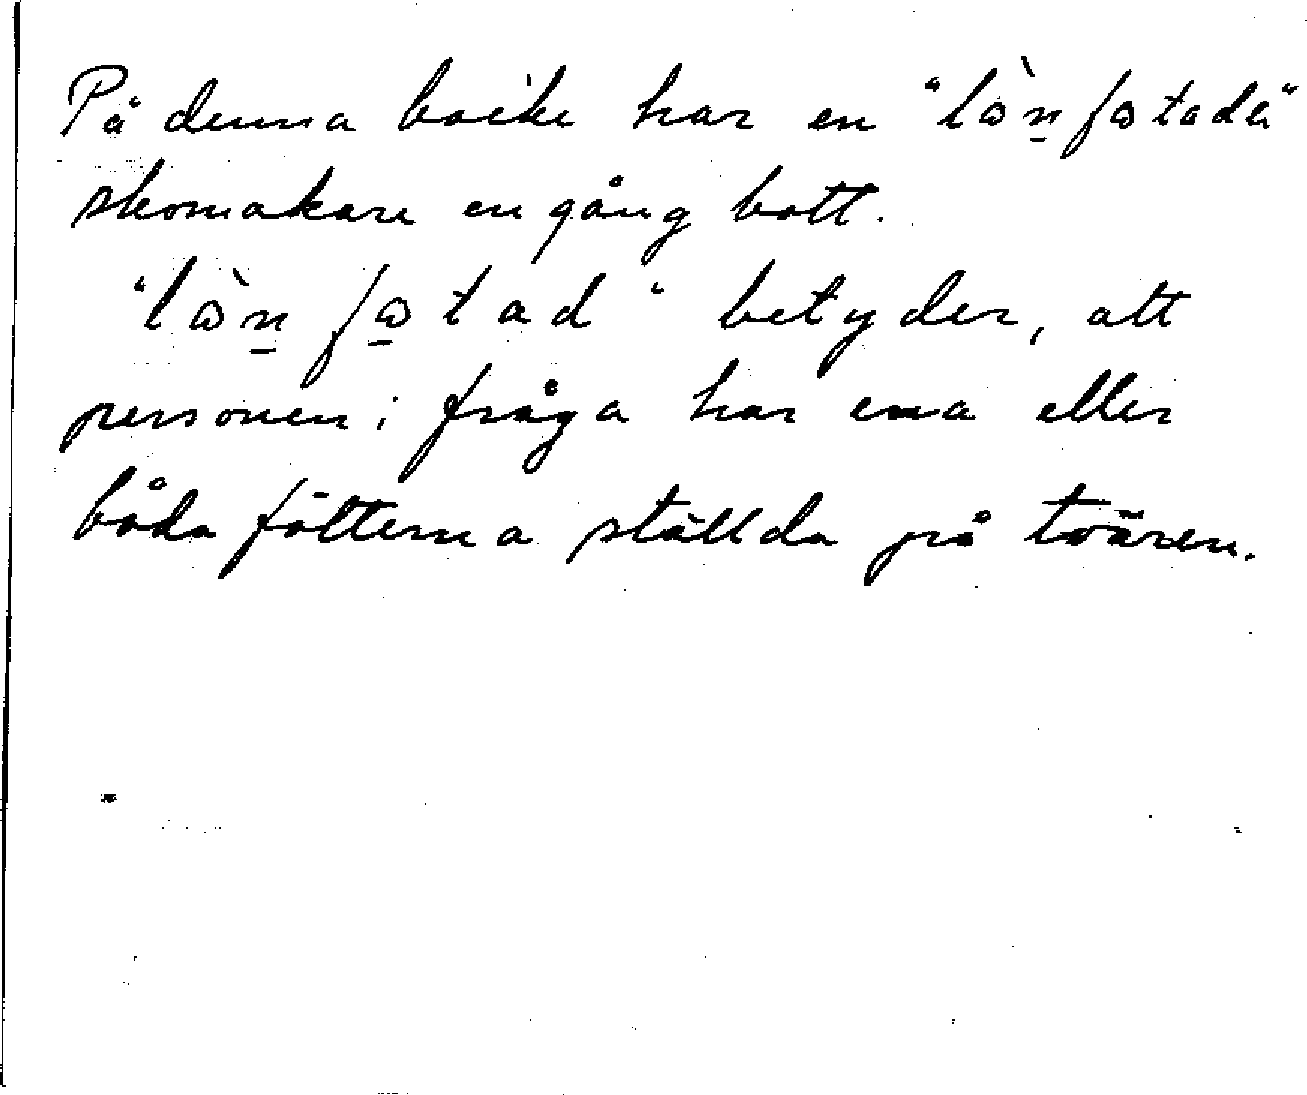 På denna backe har en "lònfotade"
skomakare en gång bott.
"lònfotad" betyder, att
personen i fråga har ena eller
båda fötterna ställda på tvären.